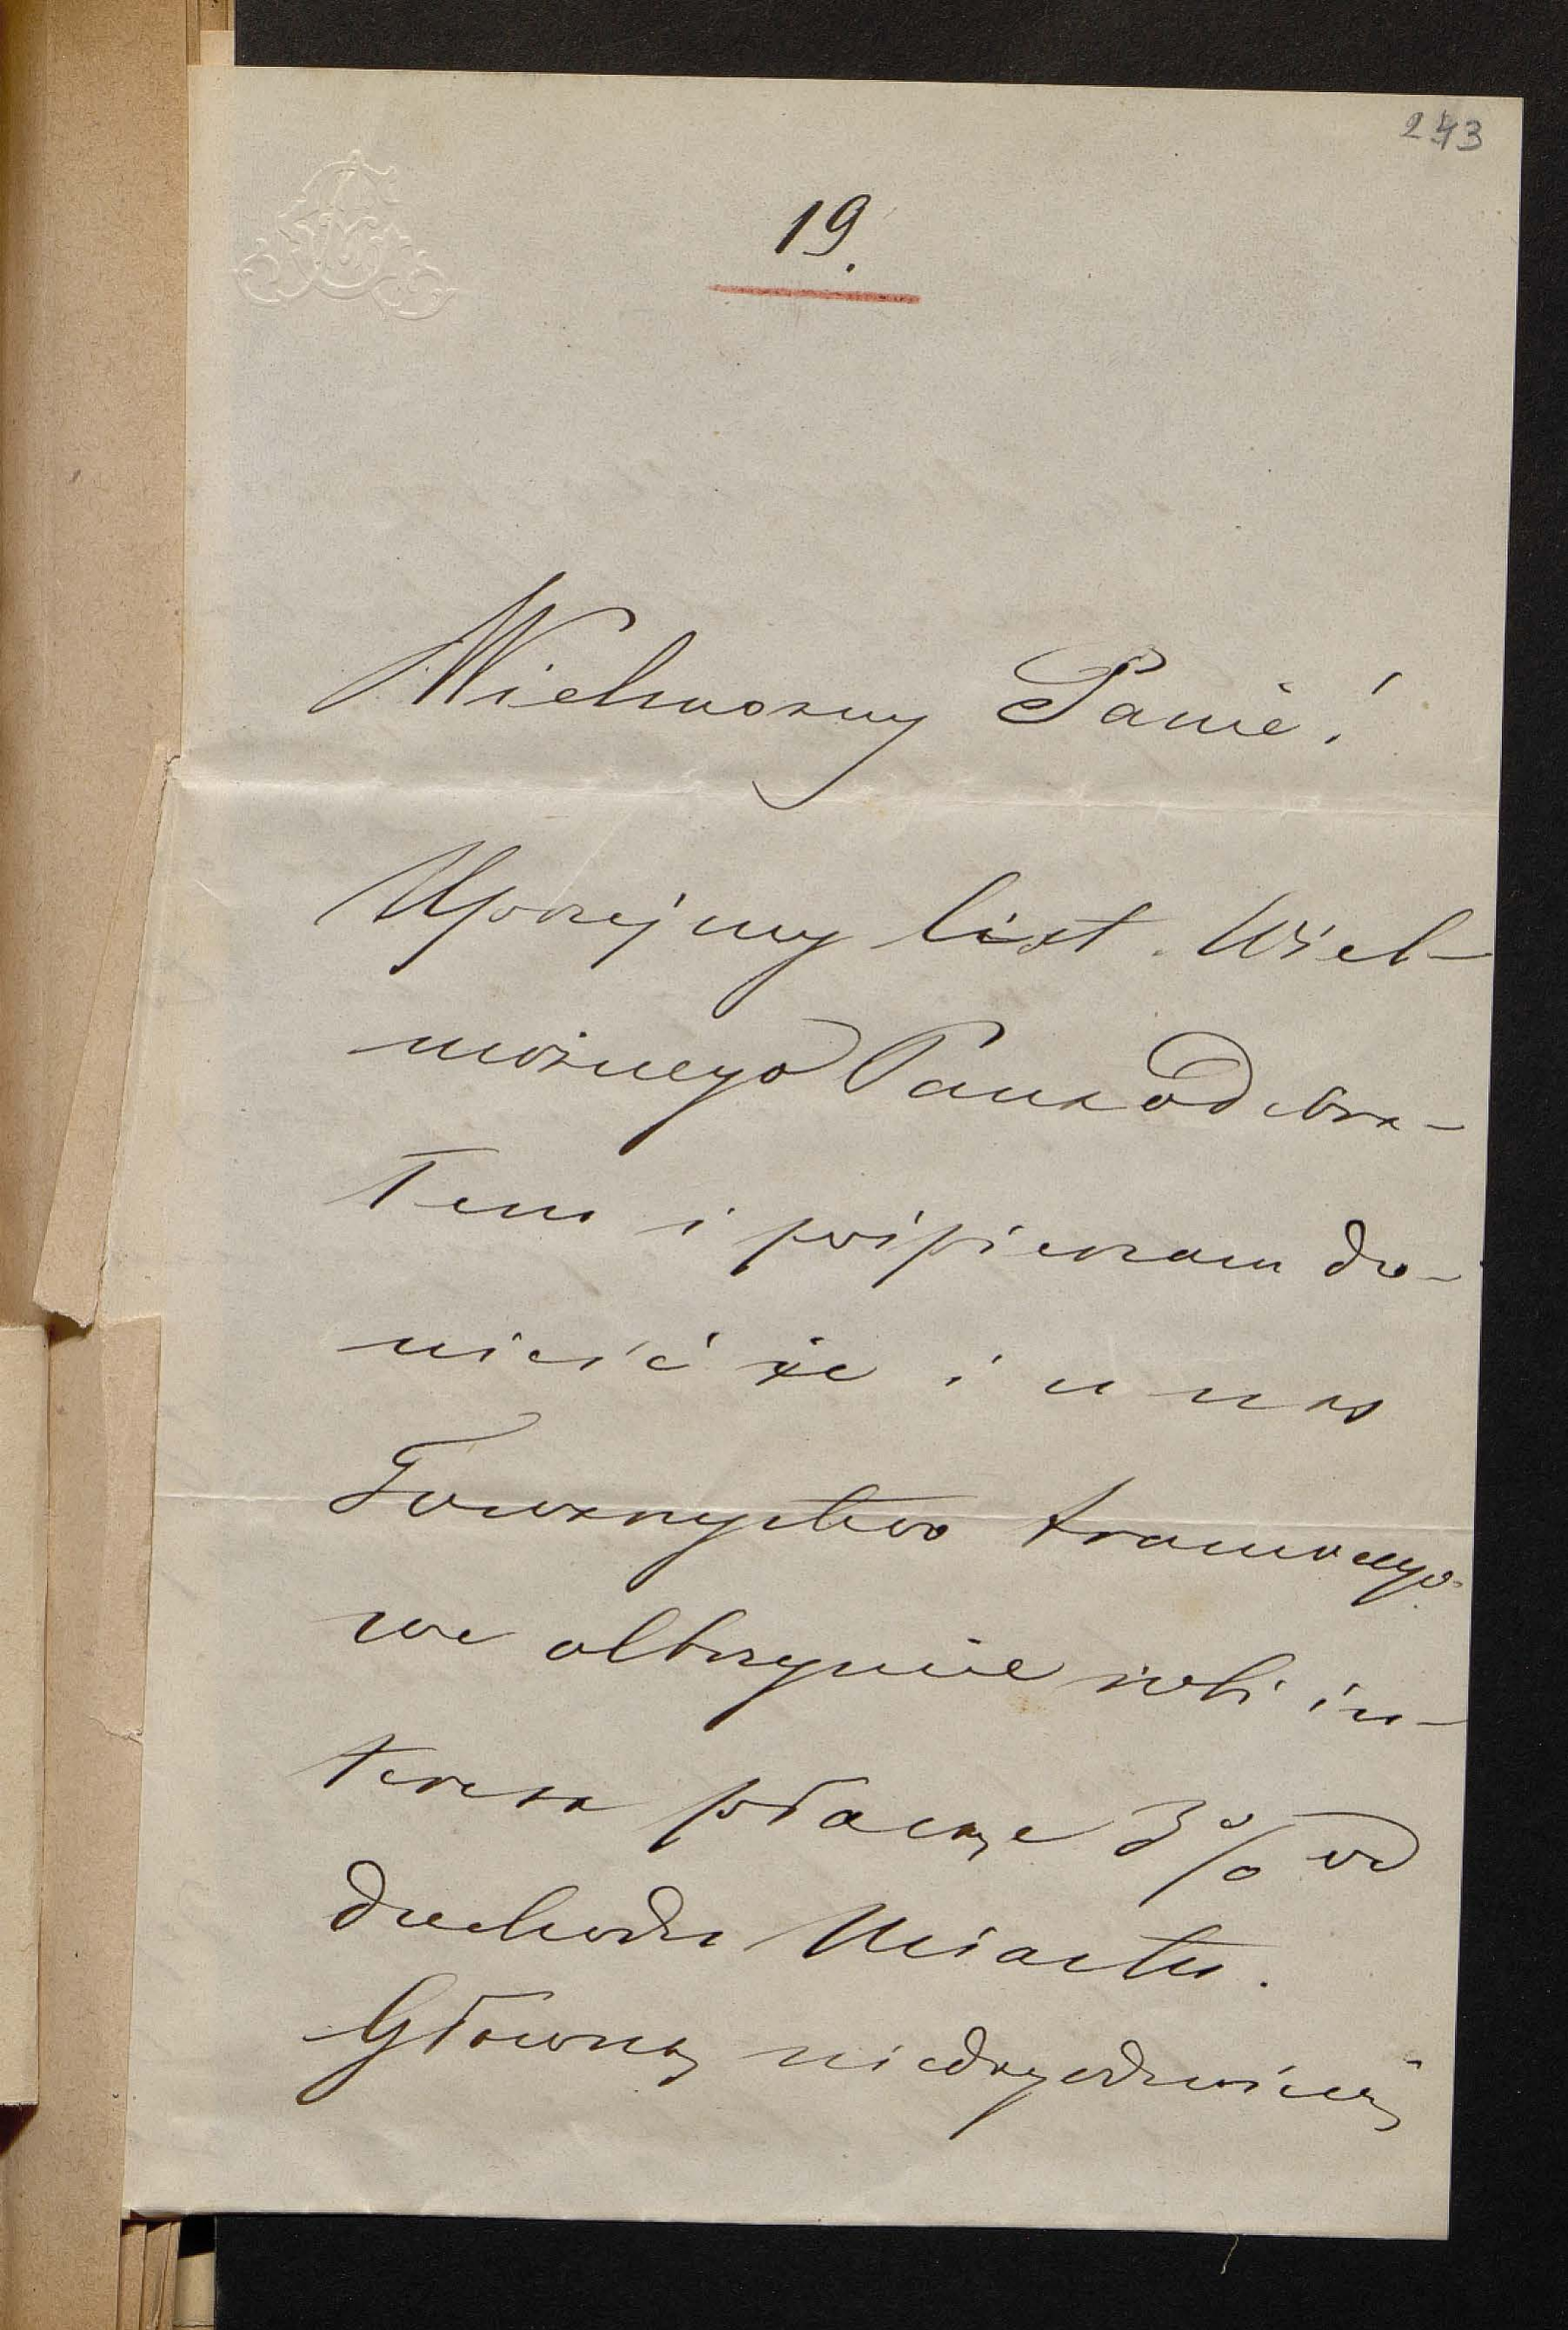 243
19.
Wielmożny Panie!
Uprzejmy list Wiel-
możnego Pana odebra-
łem i pośpieszam do-
nieść że i u nas
Towarzystwo tramwayo-
we olbrzymie robi in-
teresa płacąc 3% od
dochodu Miastu.
Główną niedogodnością